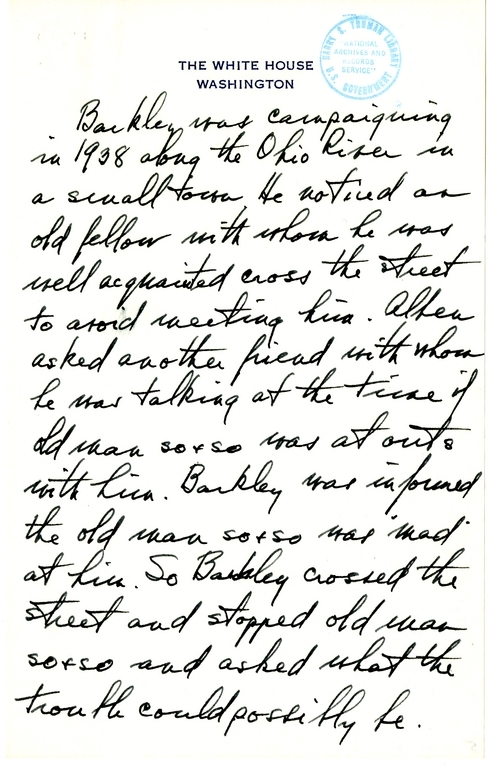 THE WHITE HOUSE
WASHINGTON
HARRY S. TRUMAN LIBRARY
"NATIONAL
ARCHIVES AND
RECORDS
SERVICE"
U.S. GOVERNMENT
Barkley was campaigning
in 1938 along the Ohio River in
a small town. He noticed an
old fellow with whom he was
well acquainted cross the street
to avoid meeting him. Alben
asked another friend with whom
he was talking at the time if
old man so+so was at outs
with him. Barkley was informed
the old man so+so was 'mad'
at him. So Barkley crossed the
street and stopped old man
so+so and asked what the
trouble could possibly be.